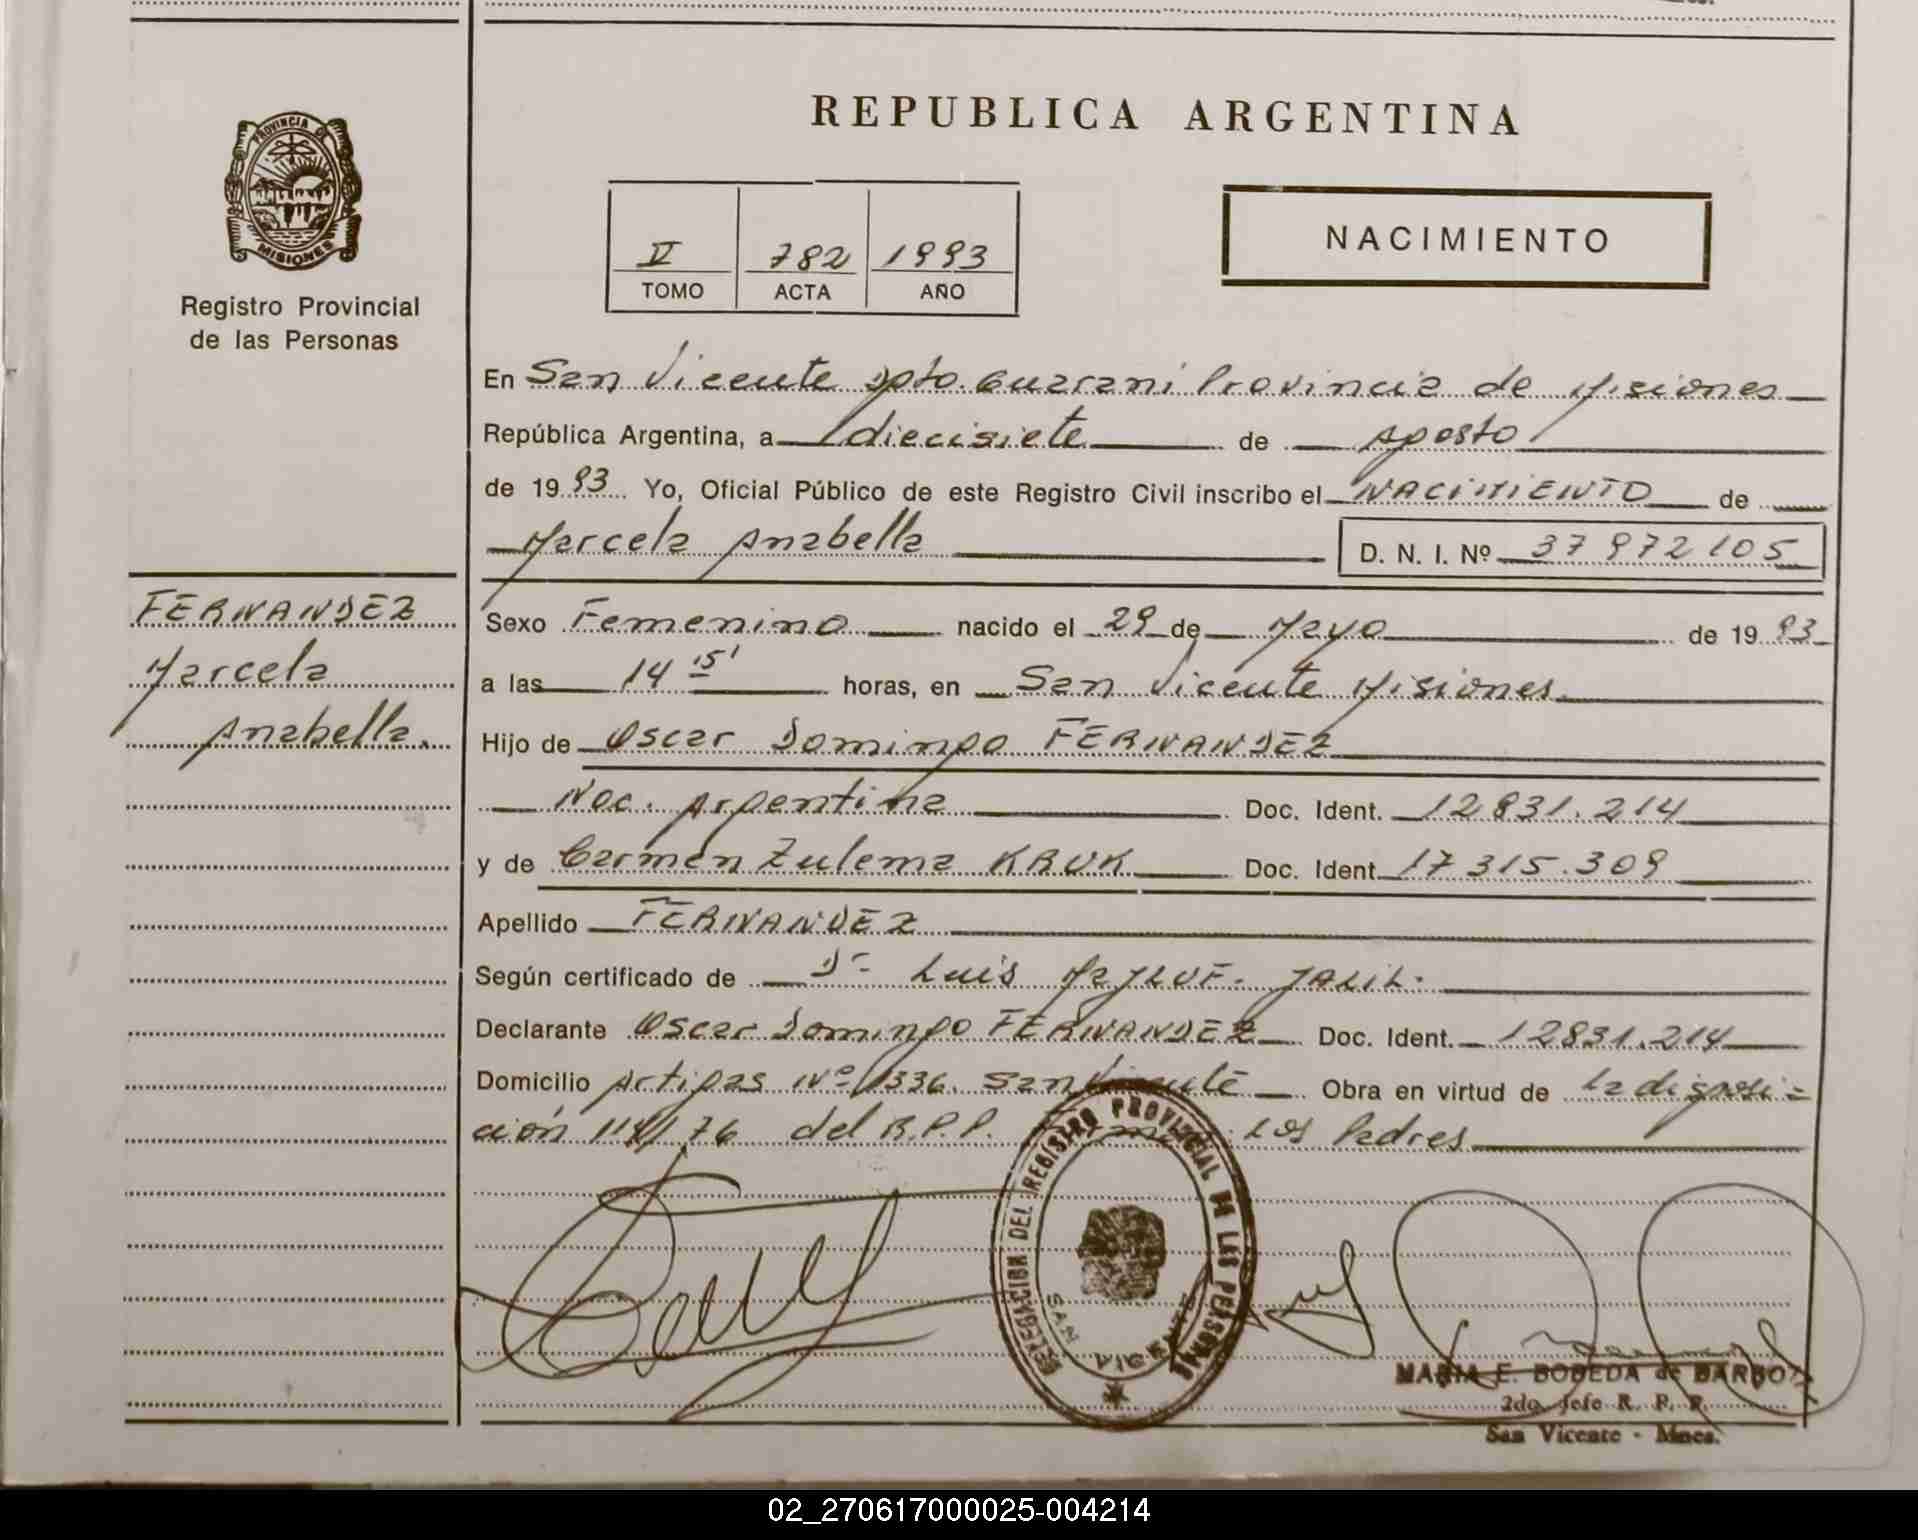 PROVINCIA DE
MISIONES
Registro Provincial
de las Personas
REPUBLICA ARGENTINA
V 782 1993
TOMO ACTA AÑO
NACIMIENTO
En San Vicente Dpto. Guaraní Provincia de Misiones
República Argentina, a diecisiete de Agosto
de 1993 Yo, Oficial Público de este Registro Civil inscribo el NACIMIENTO de
Marcela Anabella D. N. I. Nº 37972105
FERNANDEZ
Marcela
Anabella.
Sexo Femenino nacido el 29 de Mayo de 1993
a las 14 15' horas, en San Vicente Misiones
Hijo de Oscar Domingo FERNANDEZ
Nac. Argentina Doc. Ident. 12831.214
y de Carmen Zulema KRUK Doc. Ident. 17315.309
Apellido FERNANDEZ
Según certificado de Dr Luis JALIL.
Declarante Oscar Domingo FERNANDEZ Doc. Ident. 12831.214
Domicilio Artigas Nº 1336. San Vicente Obra en virtud de la disposi-
ción 76 del R.P.P. Los Padres
DELEGACION DEL REGISTRO PROVINCIAL DE LAS PERSONAS
SAN VICENTE
MARIA E. BOBEDA de BARBOZA
2do. Jefe R. P. P.
San Vicente - Mnes.
02_270617000025-004214